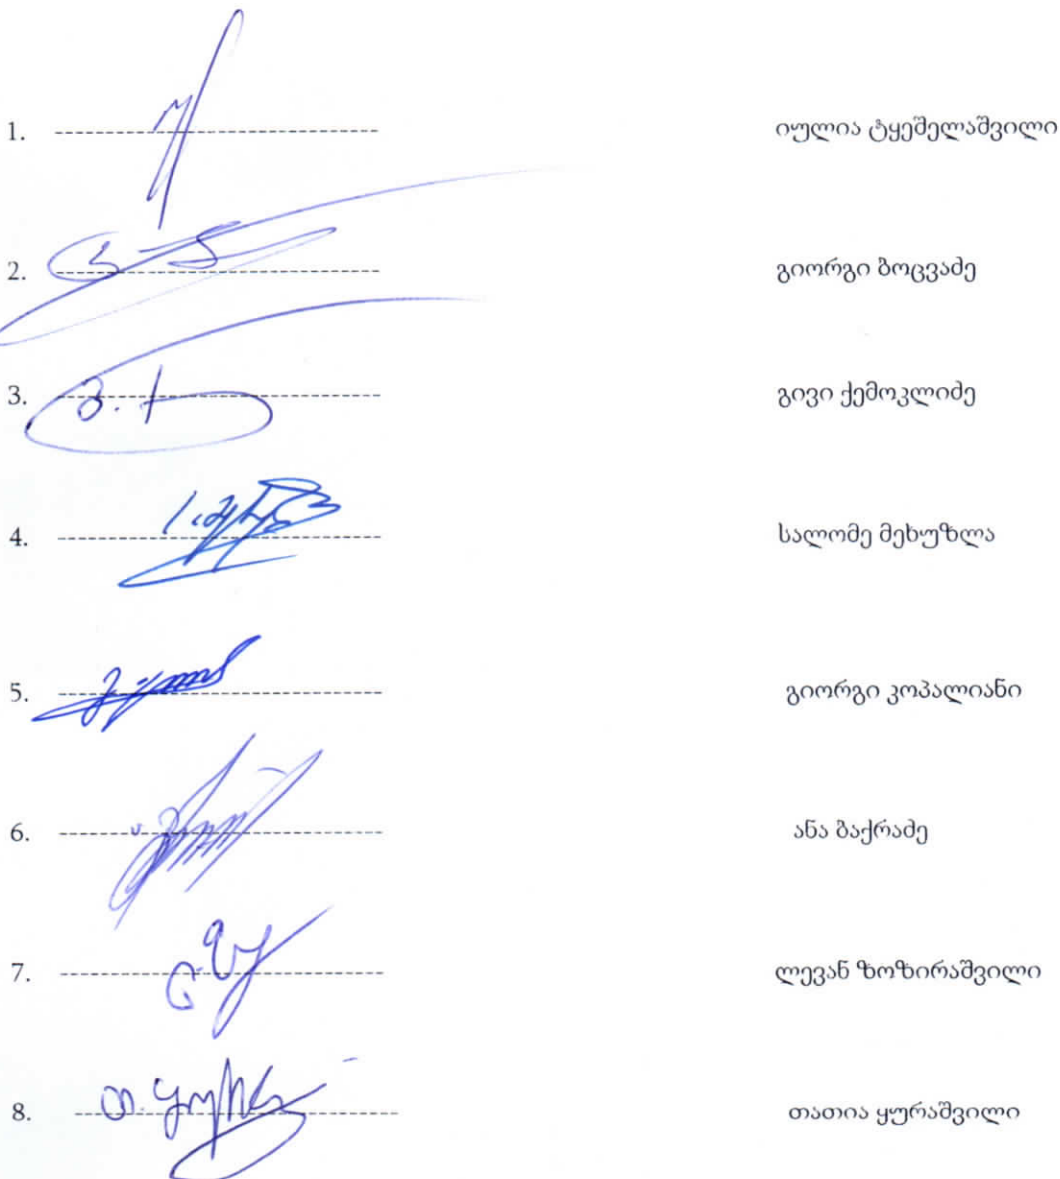 1. იულია ტყეშელაშვილი
2. გიორგი ბოცვაძე
3. გივი ქემოკლიძე
4. სალომე მეხუზლა
5. გიორგი კოპალიანი
6. ანა ბაქრაძე
7. ლევან ზოზირაშვილი
8. თათია ყურაშვილი